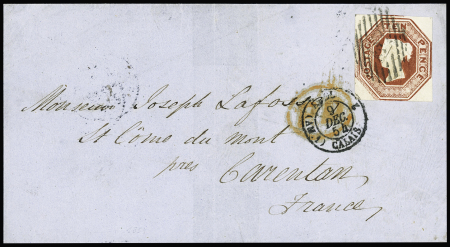 POSTAGE TEN PENCE
9
DEC.
54
CALAIS
Monsieur Joseph Lafosse
St Côme du mont
près Carentan
France